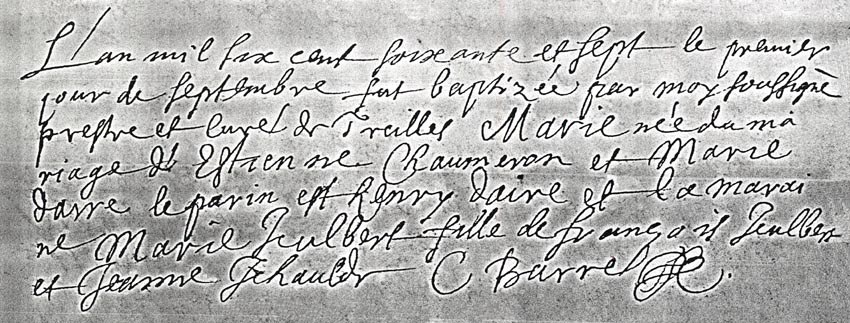 L'an mil six cent soixante et sept le premier
jour de septembre fut baptizée par moy soussigné
prestre et Curé de Treilles Marie née du ma
riage d' Estienne Chaumeron et Marie
darre le parin est henry daire et la marai
ne Marie Jeulbert fille de françois Jeulbert
et Jeanne C Barrel